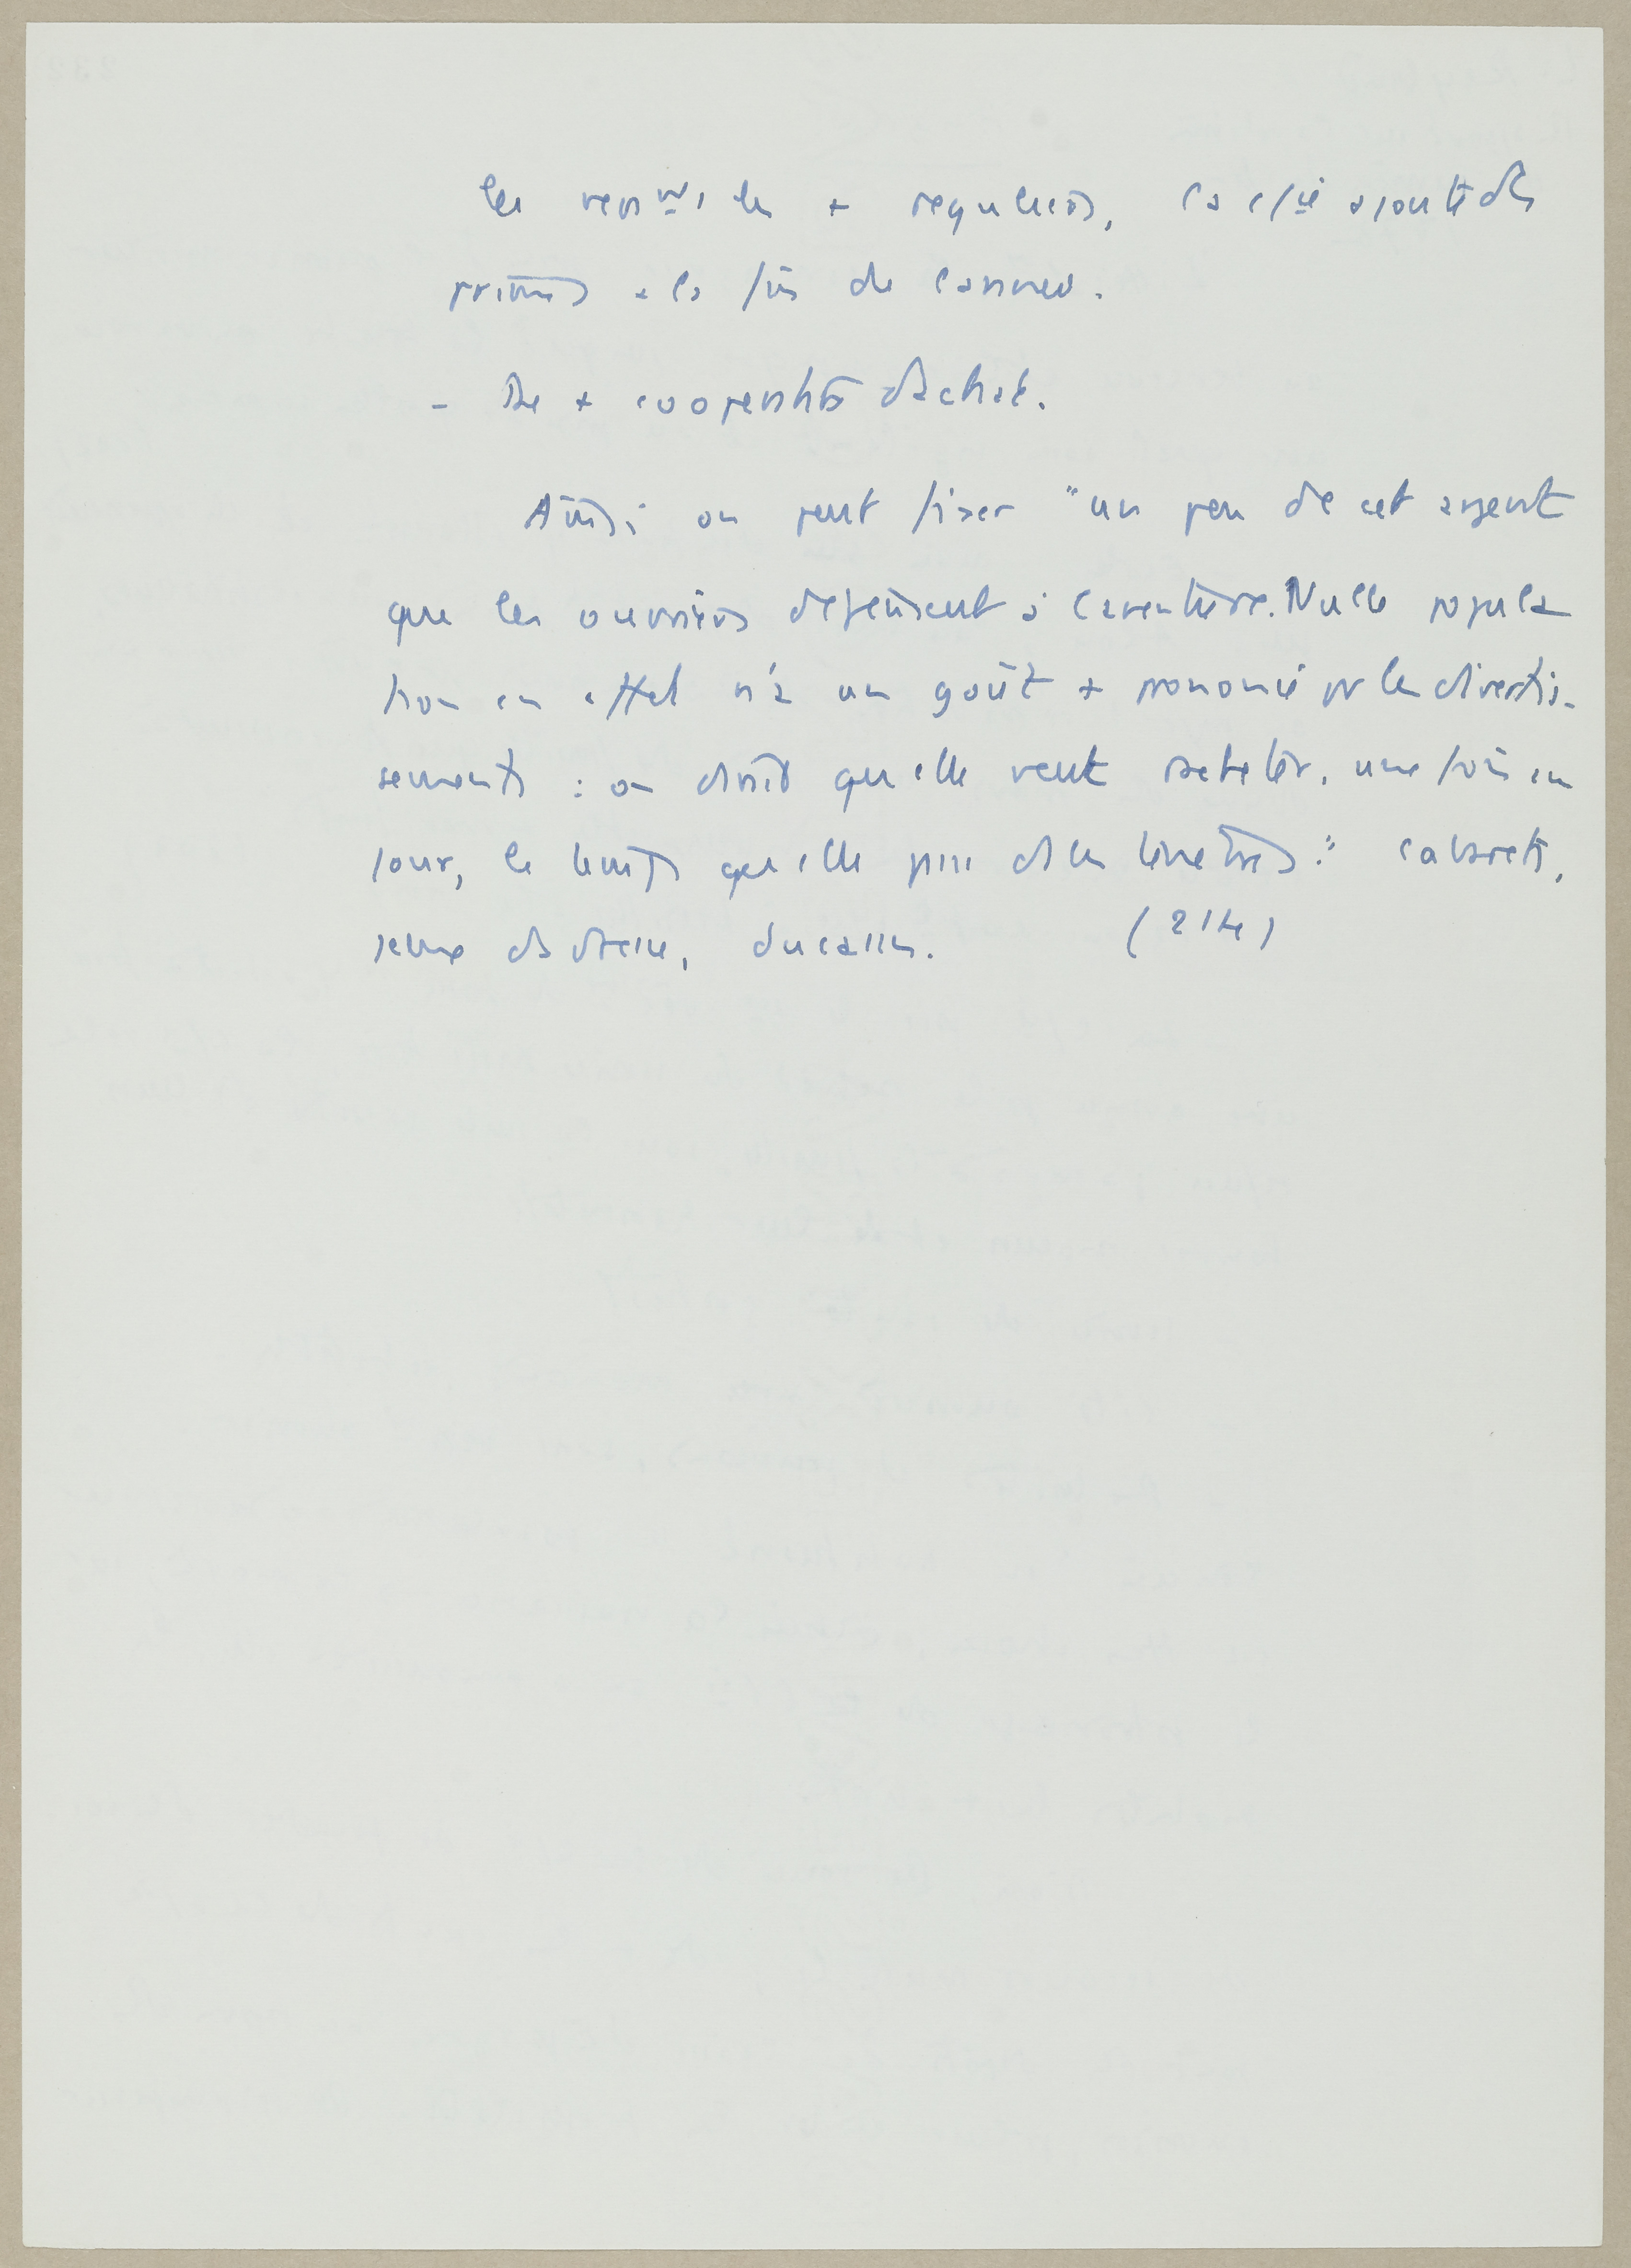 les versmts les + reguliers, la cie ajoute des
primes a la fin de l'annee.
- De + cooperatives d'achat.
Ainsi on peut fixer "un peu de cet argent
que les ouvriers depensent à l'aventure. Nulle popula
tion en effet n'a un goût + prononcé pr les divertis-
sements : on dirait qu'elle veut racheter, une fois au
jour, le temps qu'elle passe ds les tenebres." cabarets,
jeux d'adresse, ducasses. (214)